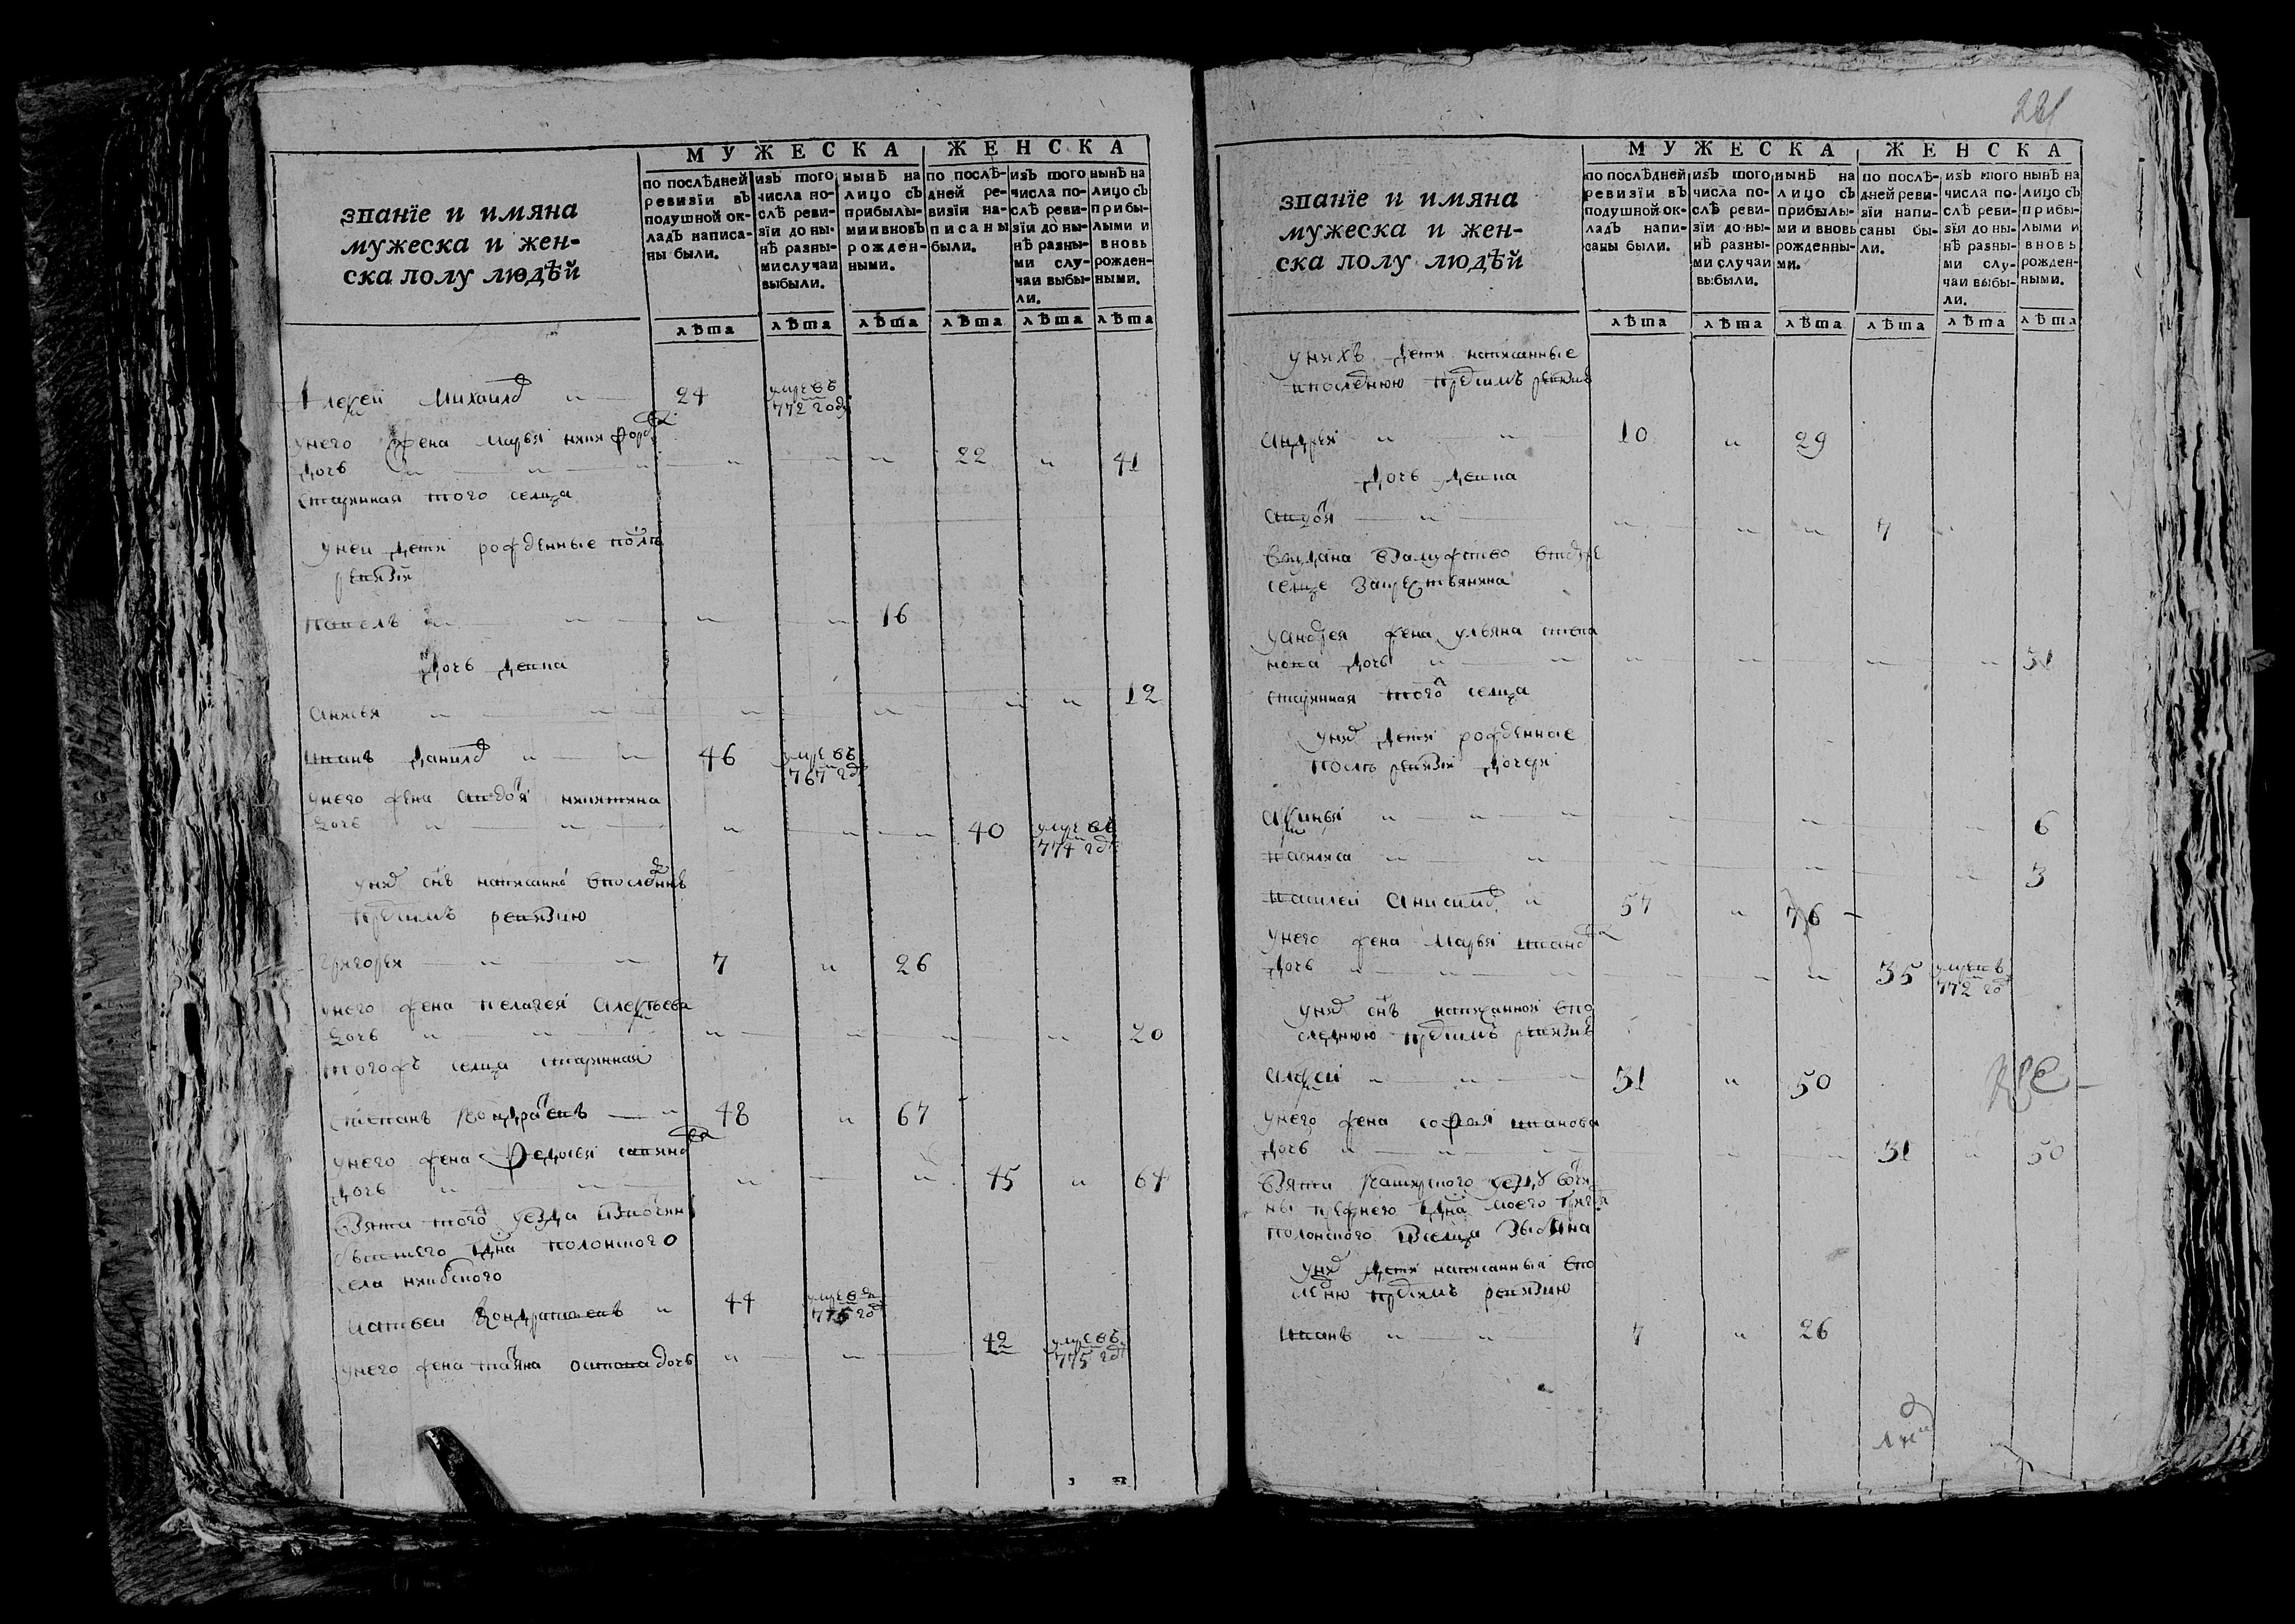 МУЖЕСКА ЖЕНСКА
званїе и имяна
мужеска и жен-
ска полу людѣй
по послѣдней
ревизїи въ
подушной ок-
ладъ написа-
ны были.
изъ того
числа по-
слѣ реви-
зїи до ны-
нѣ разны-
ми случаи
выбыли.
нынѣ на
лицо съ
прибылы-
ми и вновь
рожден-
ными.
по послѣ-
дней ре-
визїи на-
писаны
были.
изъ того
числа по-
слѣ реви-
зїи до ны-
нѣ разны-
ми слу-
чаи выбы-
ли.
нынѣ на
лицо съ
прибы-
лыми и
вновь
рожден-
ными.
лѣта лѣта лѣта лѣта лѣта лѣта
Алексей Михаилов 24 умре въ
772 годе
у него жена Марья никифорова
дочь 22 41
старинная того селца
у неи дети рожденные после
ревизiи
Павелъ 16
дочь девка
Анисья 12
Иванъ Данилов 46 умре въ
767 год
у него жена Авдотя никитина
дочь 40 умре въ
774 год
у них снъ написанной в последнюю
пред симъ ревизию
Григорей 7 26
у него жена Пелагея Алексеева
дочь 20
того ж селца старинная
Степанъ Кондратевъ 48 67
у него жена Федосея
дочь 45 64
Взята того уезда
села
Матвеи Кондратьевъ 44 умре въ
775 год
у него жена Татяна дочь 42 умре въ
775 год
221
МУЖЕСКА ЖЕНСКА
званїе и имяна
мужеска и жен-
ска полу людѣй
по послѣдней
ревизїи въ
подушной ок-
ладъ напи-
саны были.
изъ того
числа по-
слѣ реви-
зїи до ны-
нѣ разны-
ми случаи
выбыли.
нынѣ на
лицо съ
прибылы-
ми и вновь
рожденны-
ми.
по послѣ-
дней реви-
зїи напи-
саны бы-
ли.
изъ того
числа по-
слѣ реви-
зїи до ны-
нѣ разны-
ми слу-
чаи выбы-
ли.
нынѣ на
лицо съ
прибы-
лыми и
вновь
рожден-
ными.
лѣта лѣта лѣта лѣта лѣта лѣта
у нихъ дети написанные
в последнюю пред симъ ревизию
Андрей 10 29
дочь девка
Авдотя 7
выдана в замужство в том же
селце за крестьянина
у Андрея жена Ульяна степа
нова дочь 31
старинная того селца
у них дети рожденные
после ревизiи дочери
Аксинья 6
Василиса 3
Василей Анисимов 57 76
у него жена Марья иванова
дочь 35 умре въ
772 год
у них снъ написанной в по
следнюю пред симъ ревизию
Алексей 31 50
у него жена Софья иванова
дочь 31 50
Взята Каширского уезда вотчи
ны прежнего
полонского селца
у них дети написанныя в по
следнюю пред симъ ревизию
Иванъ 7 26